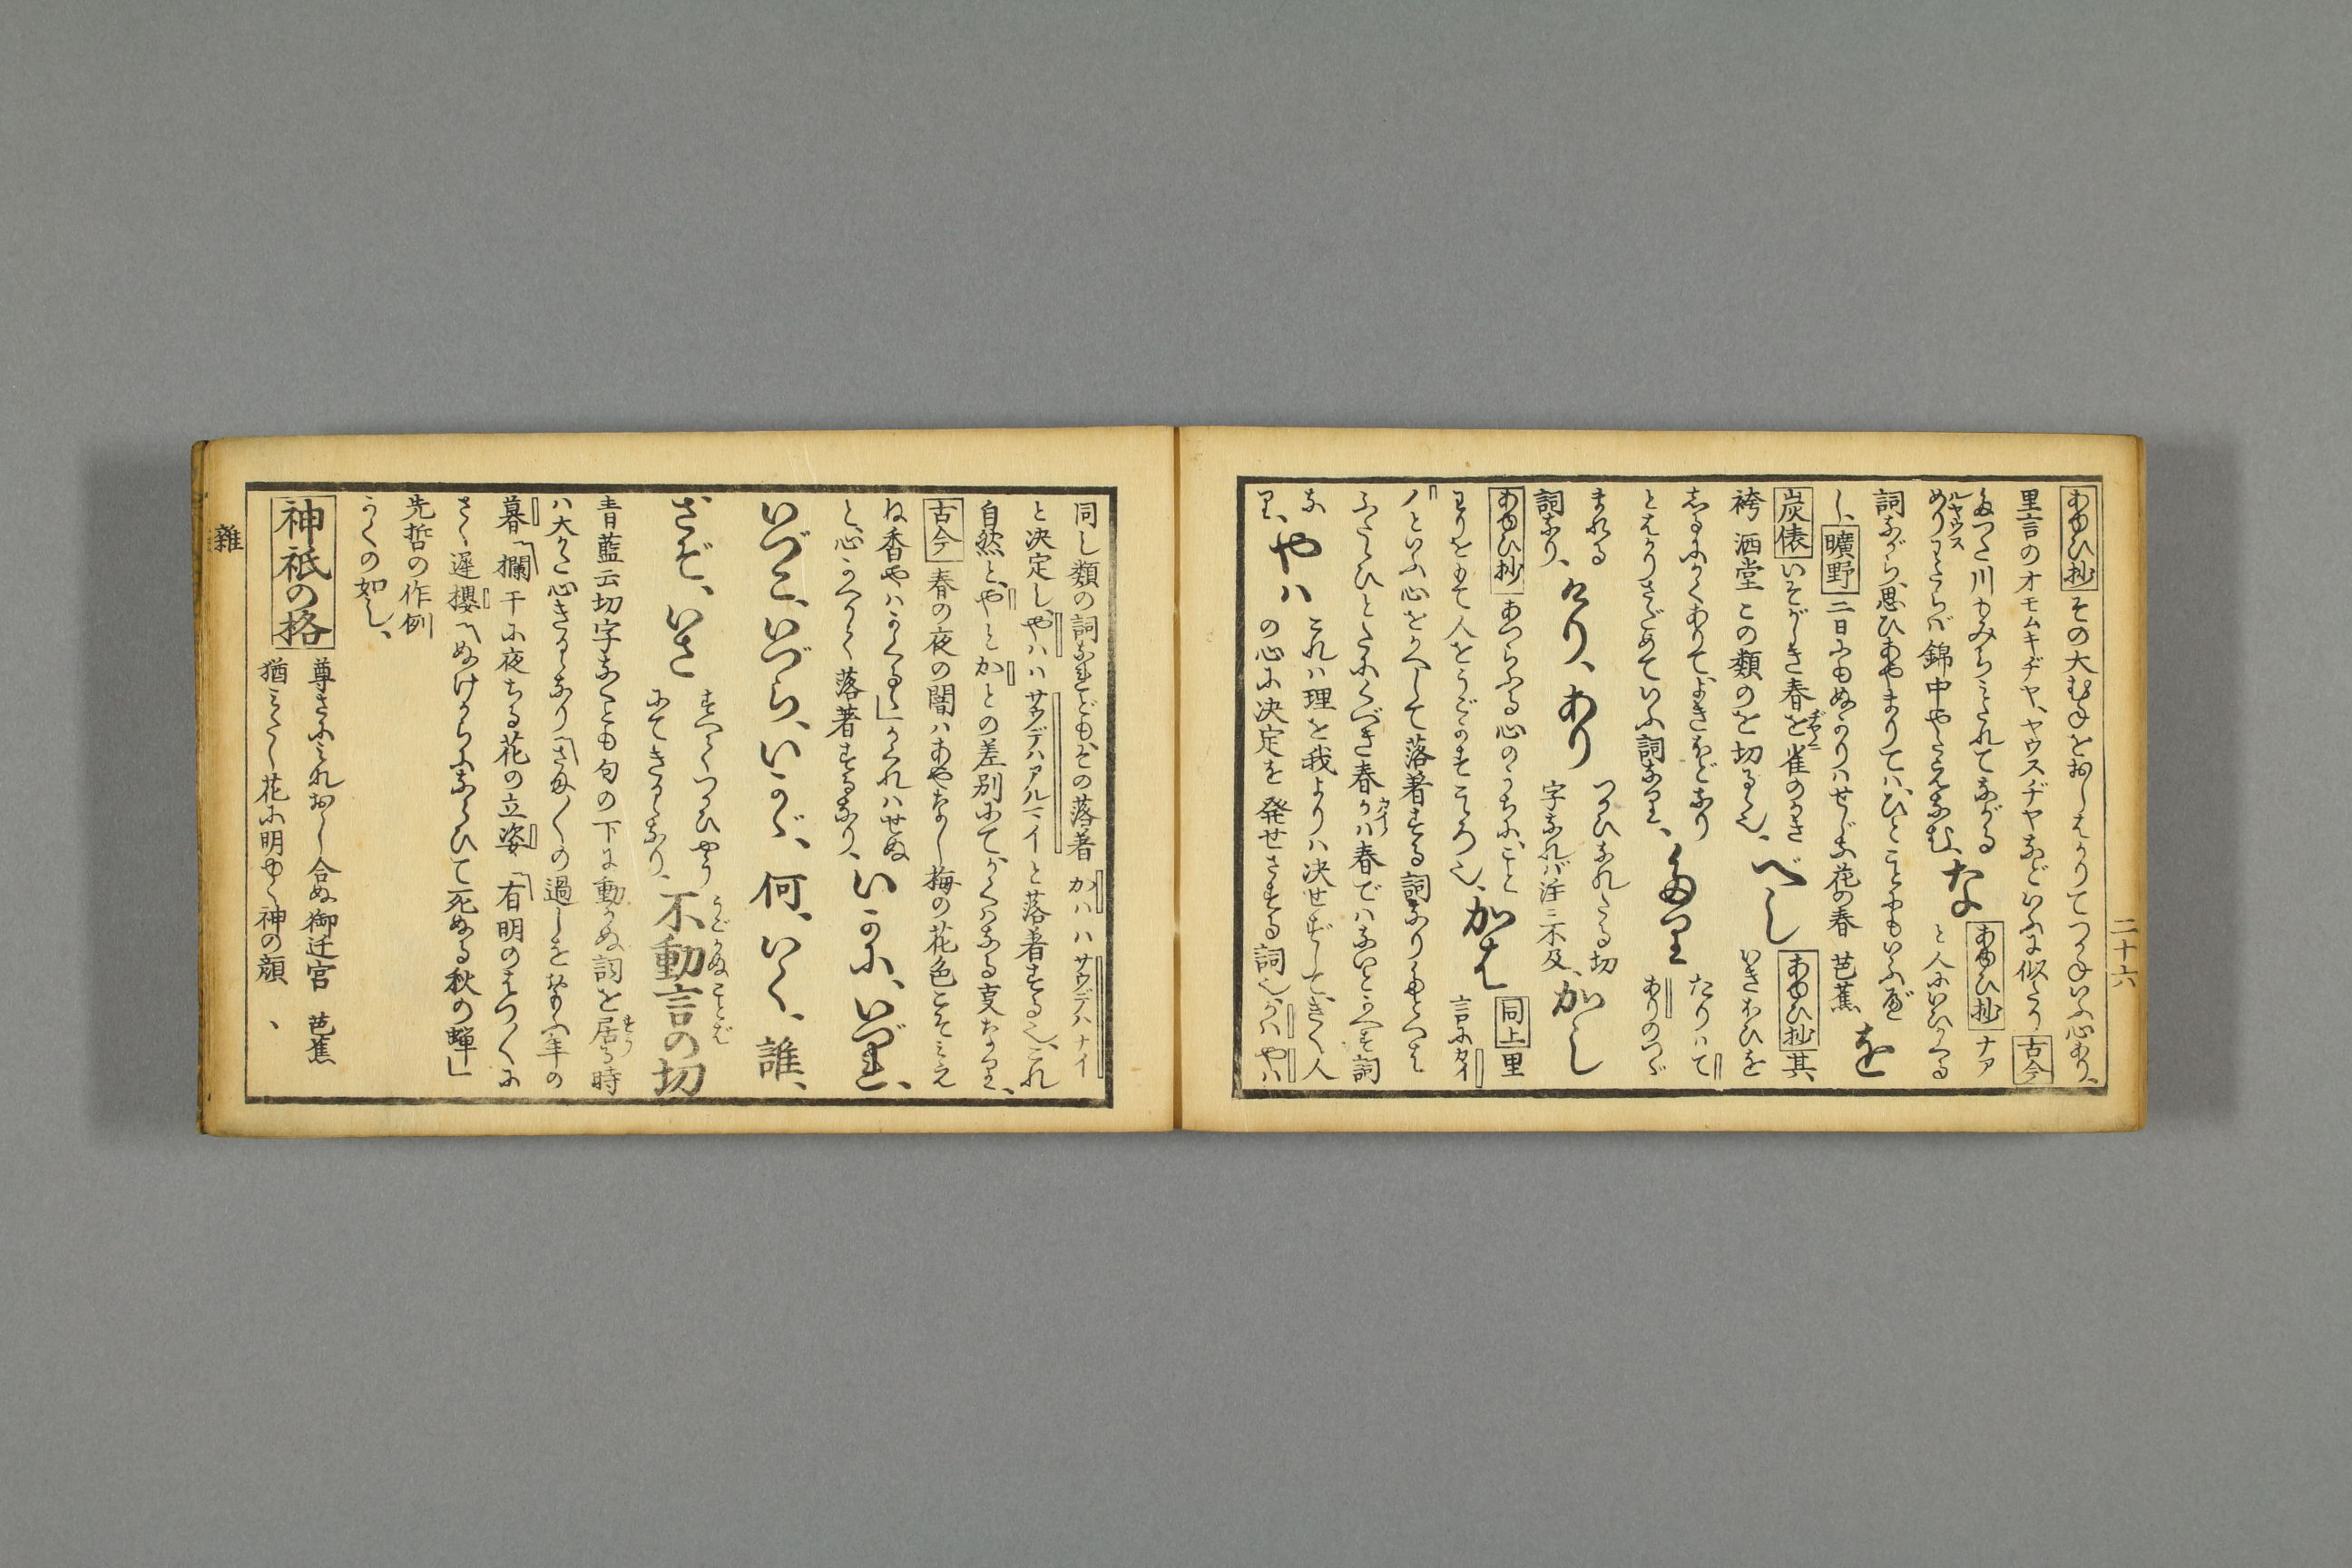 二十六
あゆひ抄 その大むねをおしはかりてつかねいふ心あり、
里言のオモムキヂヤ、ヤウスヂヤなどいふに似たり 古今
たつた川もみちみたれてながる
めりわたらば錦中やたえなむ、
ルヤウス
な あゆひ抄 ナァ
と人にいひかくる
詞ながら、思ひあやまりては、ひとことにもいふ
し、曠野 二日にもぬかりはせじな花の春 芭蕉 を
炭俵 いそがしき春を雀のかき
袴 洒堂 この類のを切る也、
べし あゆひ抄 其
いきほひを
しるにかくありて、よきほどなり
とはかりさだめていふ詞なり、
たり たりハて
ありのつゞ
まれる
詞なり、 けり、あり つかひなれたる切
字なれば註ニ不及、 かし
あゆひ抄 あつらふる心のうちに、こと
わりをもて人をうごかすこころ也、 かは 同上 里
言にカイ
ノといふ心をかへして落着する詞なり
ふたゝひとたに くべき春かは春ではないとかへす詞
な
り、 やハ これハ理を我よりハ決せずしてきく人
の心に決定を発せさする詞也かはやは
同し類の詞なれどもその落着 かハハサウデハナイ
と決定し、やハハサウデハアルマイと落着する也、これ
自然と、やとかとの差別にて、かくはなる支なり、
古今 春の夜の闇ハあやなし梅の花色こそみえ
ね香やハかくるゝ」かくれハせぬ
と、心かへりて落着するなり、 いかに、いづれ、
いづこ、いづら、いかゞ、何、いく、誰、
さぞ、いさ すべてつかひやう
にてきるゝなり、 不動言の切
うごかぬことば
青藍云切字なくとも句の下に動かぬ詞を居る時
ハ大かた心きるゝなり「さま〴〵の過しをおもふ年の
暮「欄干に夜ちる花の立姿、「有明のはつ〳〵に
さく遅櫻「ぬけからにならひて死ぬる秋の蝉」
先哲の作例
かくの如し、
神祇の格 尊さにみなおし合ぬ御迁宮 芭蕉
猶みたし花に明ゆく神の顔 ヽ
雑